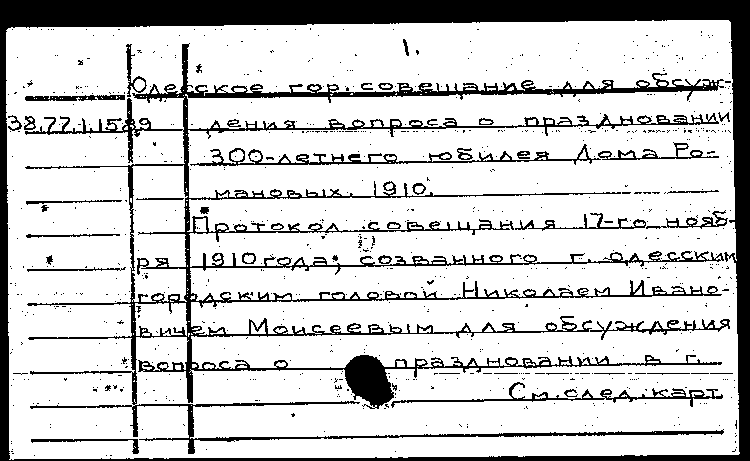 1.
Одесское гор. совещание для обсуж-
38.77.1.1589 дения вопроса о праздновании
300-летнего юбилея Дома Ро-
мановых. 1910.
Протокол совещания 17-го нояб-
ря 1910 года, созванного г. одесским
городским головой Николаем Ивано-
вичем Моисеевым для обсуждения
вопроса о праздновании в г.
См. след. карт.